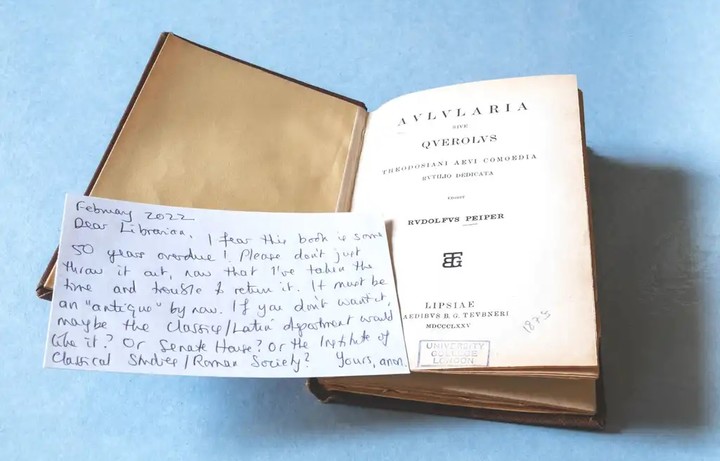 February 2022
Dear Librarian, I fear this book is some
50 years overdue! Please don't just
throw it out, now that I've taken the
time and trouble to return it. It must be
an "antique" by now. If you don't want it,
maybe the Classics/Latin department would
like it? Or Senate House? Or the Institute of
Classical Studies/Roman Society? Yours, anon.
AVLVLARIA
SIVE
QVEROLVS
THEODOSIANI AEVI COMOEDIA
RVTILIO DEDICATA
EDIDIT
RVDOLFVS PEIPER
BGT
LIPSIAE
AEDIBVS B. G. TEVBNERI
MDCCCLXXV
1875
UNIVERSITY
COLLEGE
LONDON